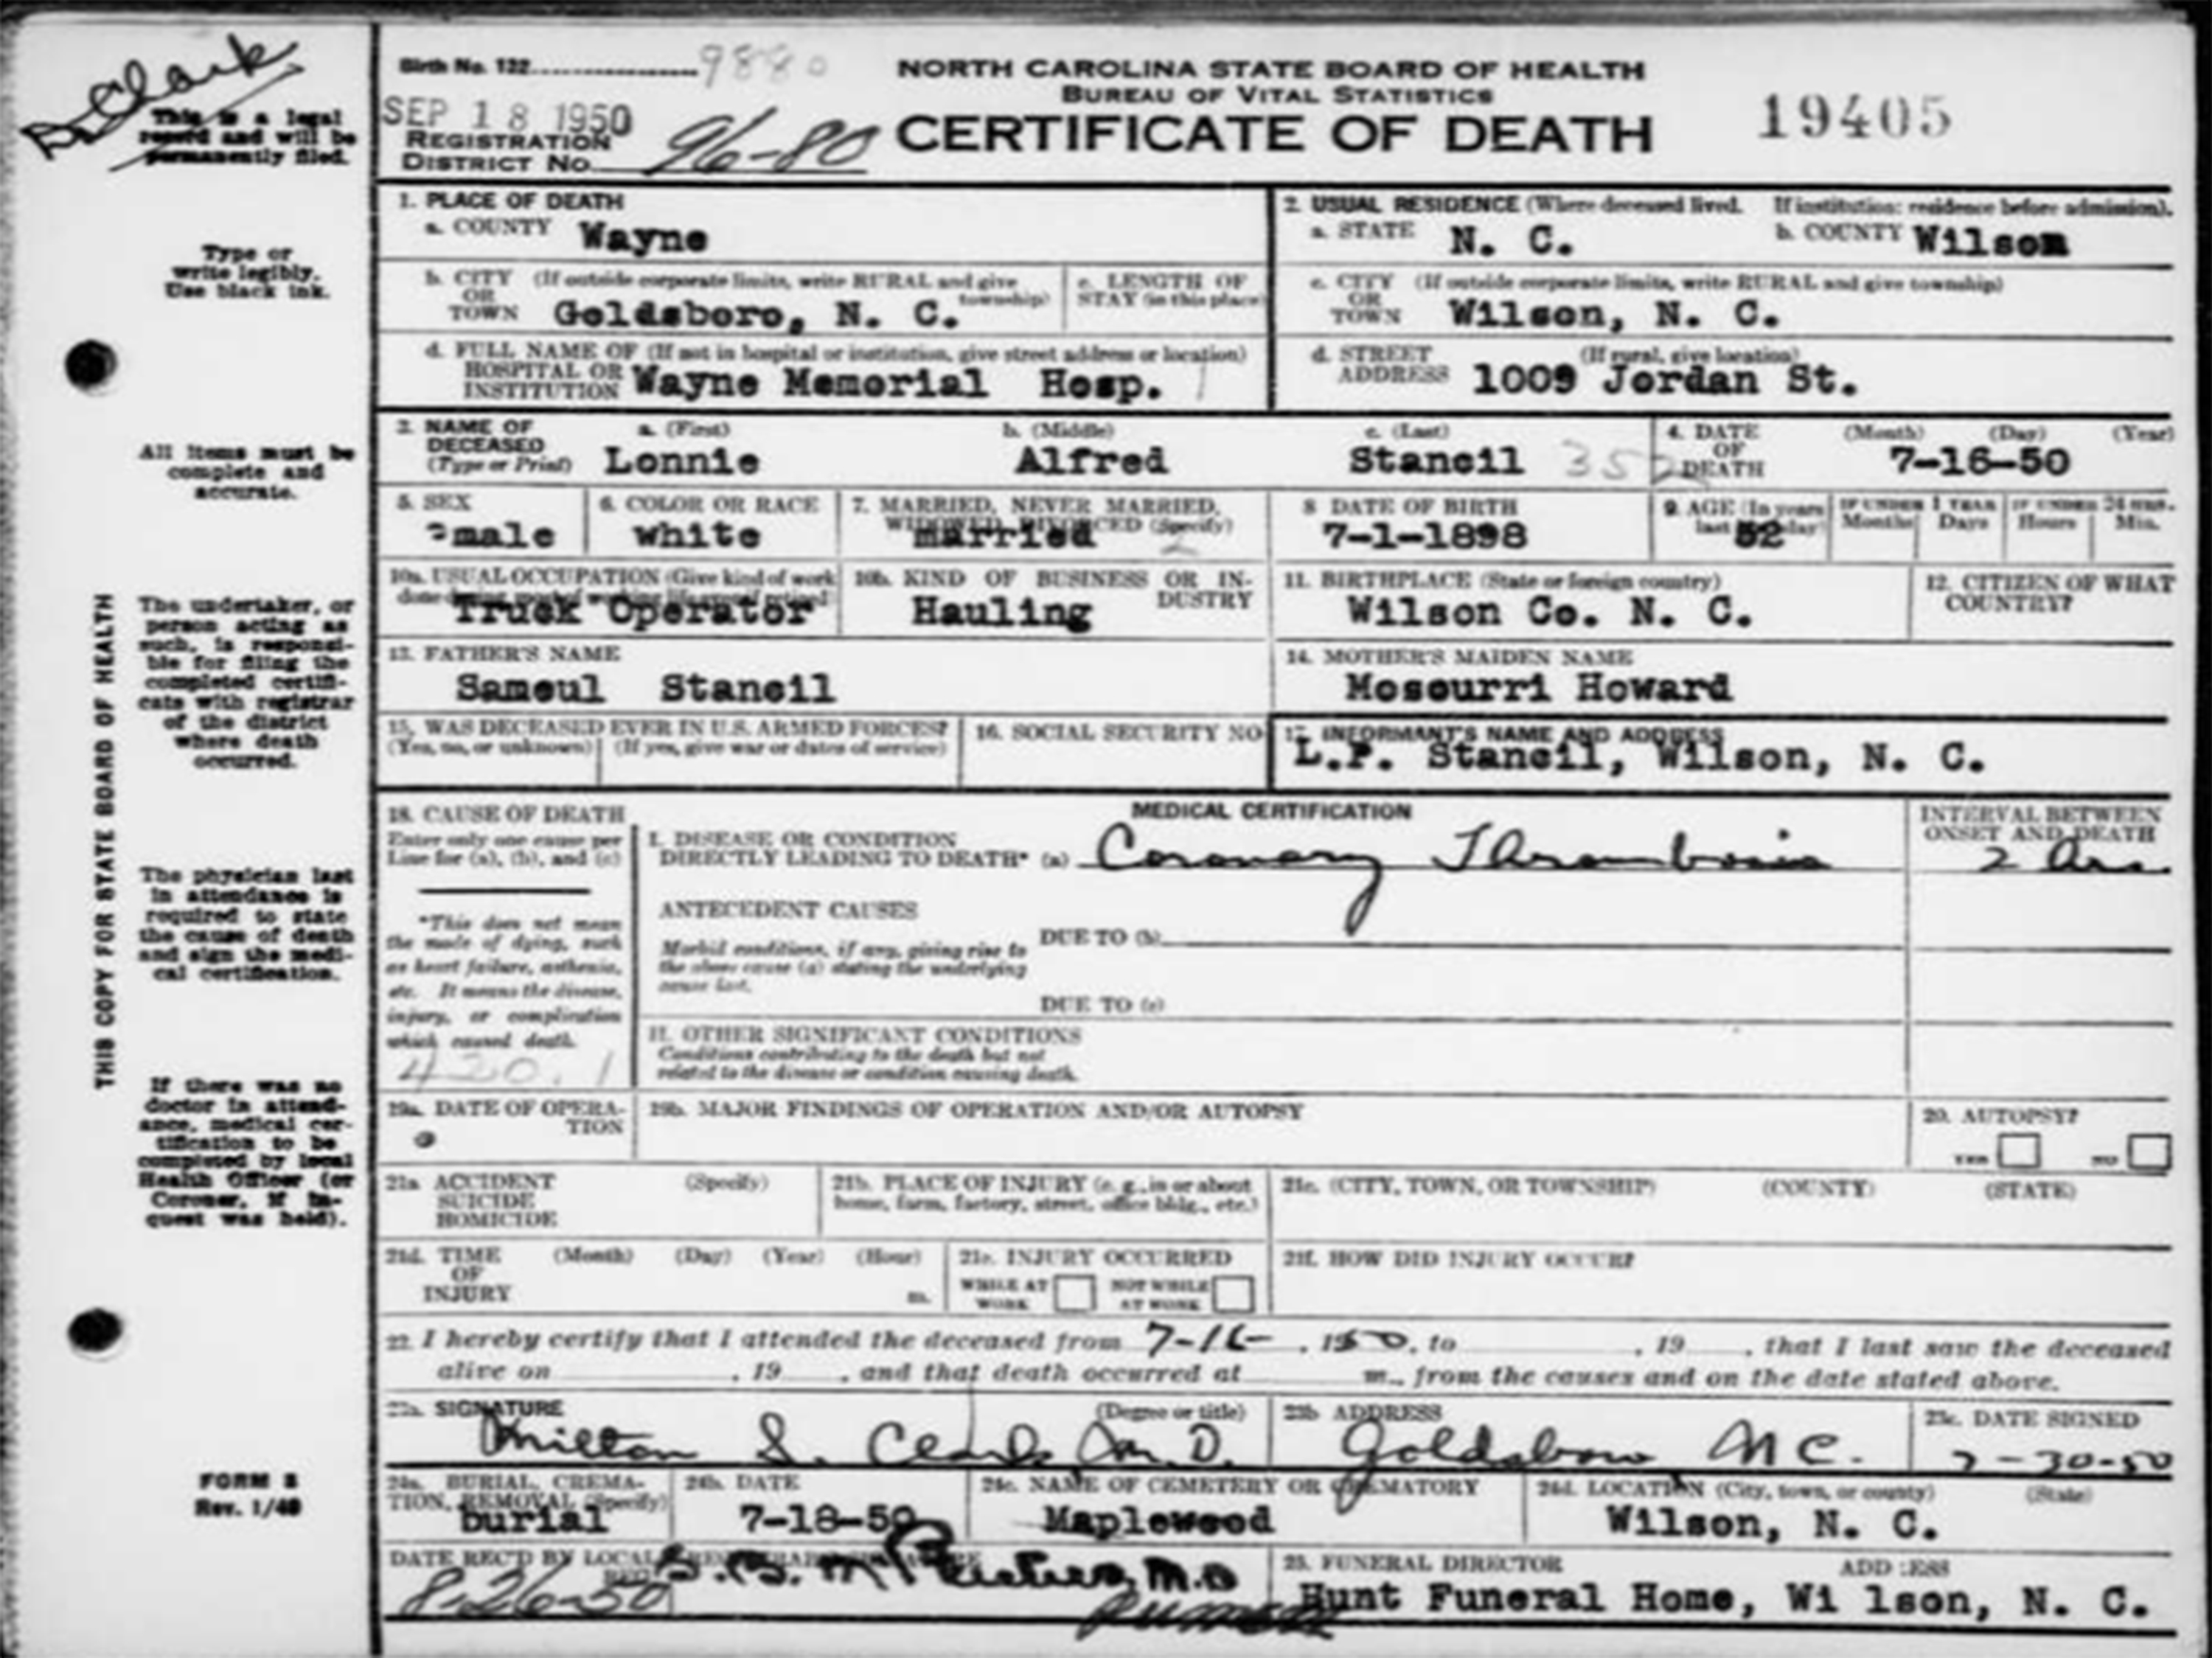 Dr Clark
This is a legal
record and will be
permanently filed.
Type or
write legibly.
Use black ink.
All items must be
complete and
accurate.
The undertaker, or
person acting as
such, is responsi-
ble for filing the
completed certifi-
cate with registrar
of the district
where death
occurred.
The physician last
in attendance is
required to state
the cause of death
and sign the medi-
cal certification.
If there was no
doctor in attend-
ance, medical cer-
tification to be
completed by local
Health Officer (or
Coroner, if in-
quest was held).
FORM 8
Rev. 1/48
THIS COPY FOR STATE BOARD OF HEALTH
Birth No. 132 9880
SEP 18 1950
REGISTRATION
DISTRICT No. 96-80
NORTH CAROLINA STATE BOARD OF HEALTH
BUREAU OF VITAL STATISTICS
CERTIFICATE OF DEATH
19405
1. PLACE OF DEATH
a. COUNTY Wayne
2. USUAL RESIDENCE (Where deceased lived. If institution: residence before admission).
a. STATE N. C. b. COUNTY Wilson
b. CITY (If outside corporate limits, write RURAL and give
OR township)
TOWN Goldsboro, N. C.
c. LENGTH OF
STAY (in this place)
c. CITY (If outside corporate limits, write RURAL and give township)
OR
TOWN Wilson, N. C.
d. FULL NAME OF (If not in hospital or institution, give street address or location)
HOSPITAL OR
INSTITUTION Wayne Memorial Hosp.
d. STREET (If rural, give location)
ADDRESS 1009 Jordan St.
3. NAME OF a. (First) b. (Middle) c. (Last)
DECEASED
(Type or Print) Lonnie Alfred Stancil 352
4. DATE (Month) (Day) (Year)
OF
DEATH 7-16-50
5. SEX
male
6. COLOR OR RACE
white
7. MARRIED, NEVER MARRIED,
WIDOWED, DIVORCED (Specify)
married 2
8 DATE OF BIRTH
7-1-1898
9. AGE (In years
last birthday)
52
IF UNDER 1 YEAR
Months Days
IF UNDER 24 HRS.
Hours Min.
10a. USUAL OCCUPATION (Give kind of work
done during most of working life, even if retired)
Truck Operator
10b. KIND OF BUSINESS OR IN-
DUSTRY
Hauling
11. BIRTHPLACE (State or foreign country)
Wilson Co. N. C.
12. CITIZEN OF WHAT
COUNTRY?
13. FATHER'S NAME
Sameul Stancil
14. MOTHER'S MAIDEN NAME
Mosourri Howard
15. WAS DECEASED EVER IN U.S. ARMED FORCES?
(Yes, no, or unknown) (If yes, give war or dates of service)
16. SOCIAL SECURITY NO
17. INFORMANT'S NAME AND ADDRESS
L.P. Stancil, Wilson, N. C.
18. CAUSE OF DEATH
Enter only one cause per
Line for (a), (b), and (c)
*This does not mean
the mode of dying, such
as heart failure, asthenia,
etc. It means the disease,
injury, or complication
which caused death.
420.1
MEDICAL CERTIFICATION
I. DISEASE OR CONDITION
DIRECTLY LEADING TO DEATH* (a) Coronary Thrombosis
INTERVAL BETWEEN
ONSET AND DEATH
2 hrs.
ANTECEDENT CAUSES
Morbid conditions, if any, giving rise to
the above cause (a) stating the underlying
cause last.
DUE TO (b)
DUE TO (c)
II. OTHER SIGNIFICANT CONDITIONS
Conditions contributing to the death but not
related to the disease or condition causing death.
19a. DATE OF OPERA-
TION
19b. MAJOR FINDINGS OF OPERATION AND/OR AUTOPSY
20. AUTOPSY?
YES NO
21a. ACCIDENT (Specify)
SUICIDE
HOMICIDE
21b. PLACE OF INJURY (e. g., in or about
home, farm, factory, street, office bldg., etc.)
21c. (CITY, TOWN, OR TOWNSHIP) (COUNTY) (STATE)
21d. TIME (Month) (Day) (Year) (Hour)
OF
INJURY m.
21e. INJURY OCCURRED
WHILE AT WORK NOT WHILE AT WORK
21f. HOW DID INJURY OCCUR?
22. I hereby certify that I attended the deceased from 7-16-, 1950, to , 19 , that I last saw the deceased
alive on , 19 , and that death occurred at m., from the causes and on the date stated above.
23a. SIGNATURE (Degree or title)
Milton S. Clark M.D.
23b ADDRESS
Goldsboro N C.
23c. DATE SIGNED
7-30-50
24a. BURIAL, CREMA-
TION, REMOVAL (Specify)
burial
24b. DATE
7-18-50
24c. NAME OF CEMETERY OR CREMATORY
Maplewood
24d. LOCATION (City, town, or county) (State)
Wilson, N. C.
DATE REC'D BY LOCAL
REG.
8-26-50
REGISTRAR'S SIGNATURE
M.D
25. FUNERAL DIRECTOR ADDRESS
Hunt Funeral Home, Wi lson, N. C.